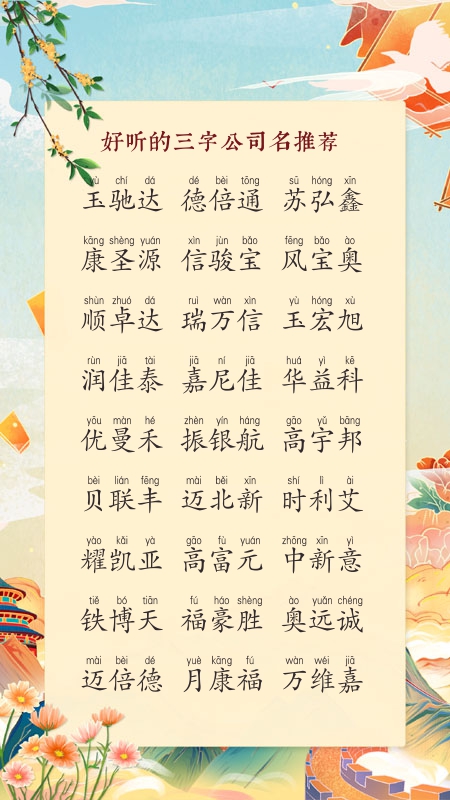 好听的三字公司名推荐
yù chí dá dé bèi tōng sū hóng xīn
玉驰达 德倍通 苏弘鑫
kāng shèng yuán xìn jùn bǎo fēng bǎo ào
康圣源 信骏宝 风宝奥
shùn zhuó dá ruì wàn xìn yù hóng xù
顺卓达 瑞万信 玉宏旭
rùn jiā tài jiā ní jiā huá yì kē
润佳泰 嘉尼佳 华益科
yōu màn hé zhèn yín háng gāo yǔ bāng
优曼禾 振银航 高宇邦
bèi lián fēng mài běi xīn shí lì ài
贝联丰 迈北新 时利艾
yào kǎi yà gāo fù yuán zhōng xīn yì
耀凯亚 高富元 中新意
tiě bó tiān fú háo shèng ào yuǎn chéng
铁博天 福豪胜 奥远诚
mài bèi dé yuè kāng fú wàn wéi jiā
迈倍德 月康福 万维嘉